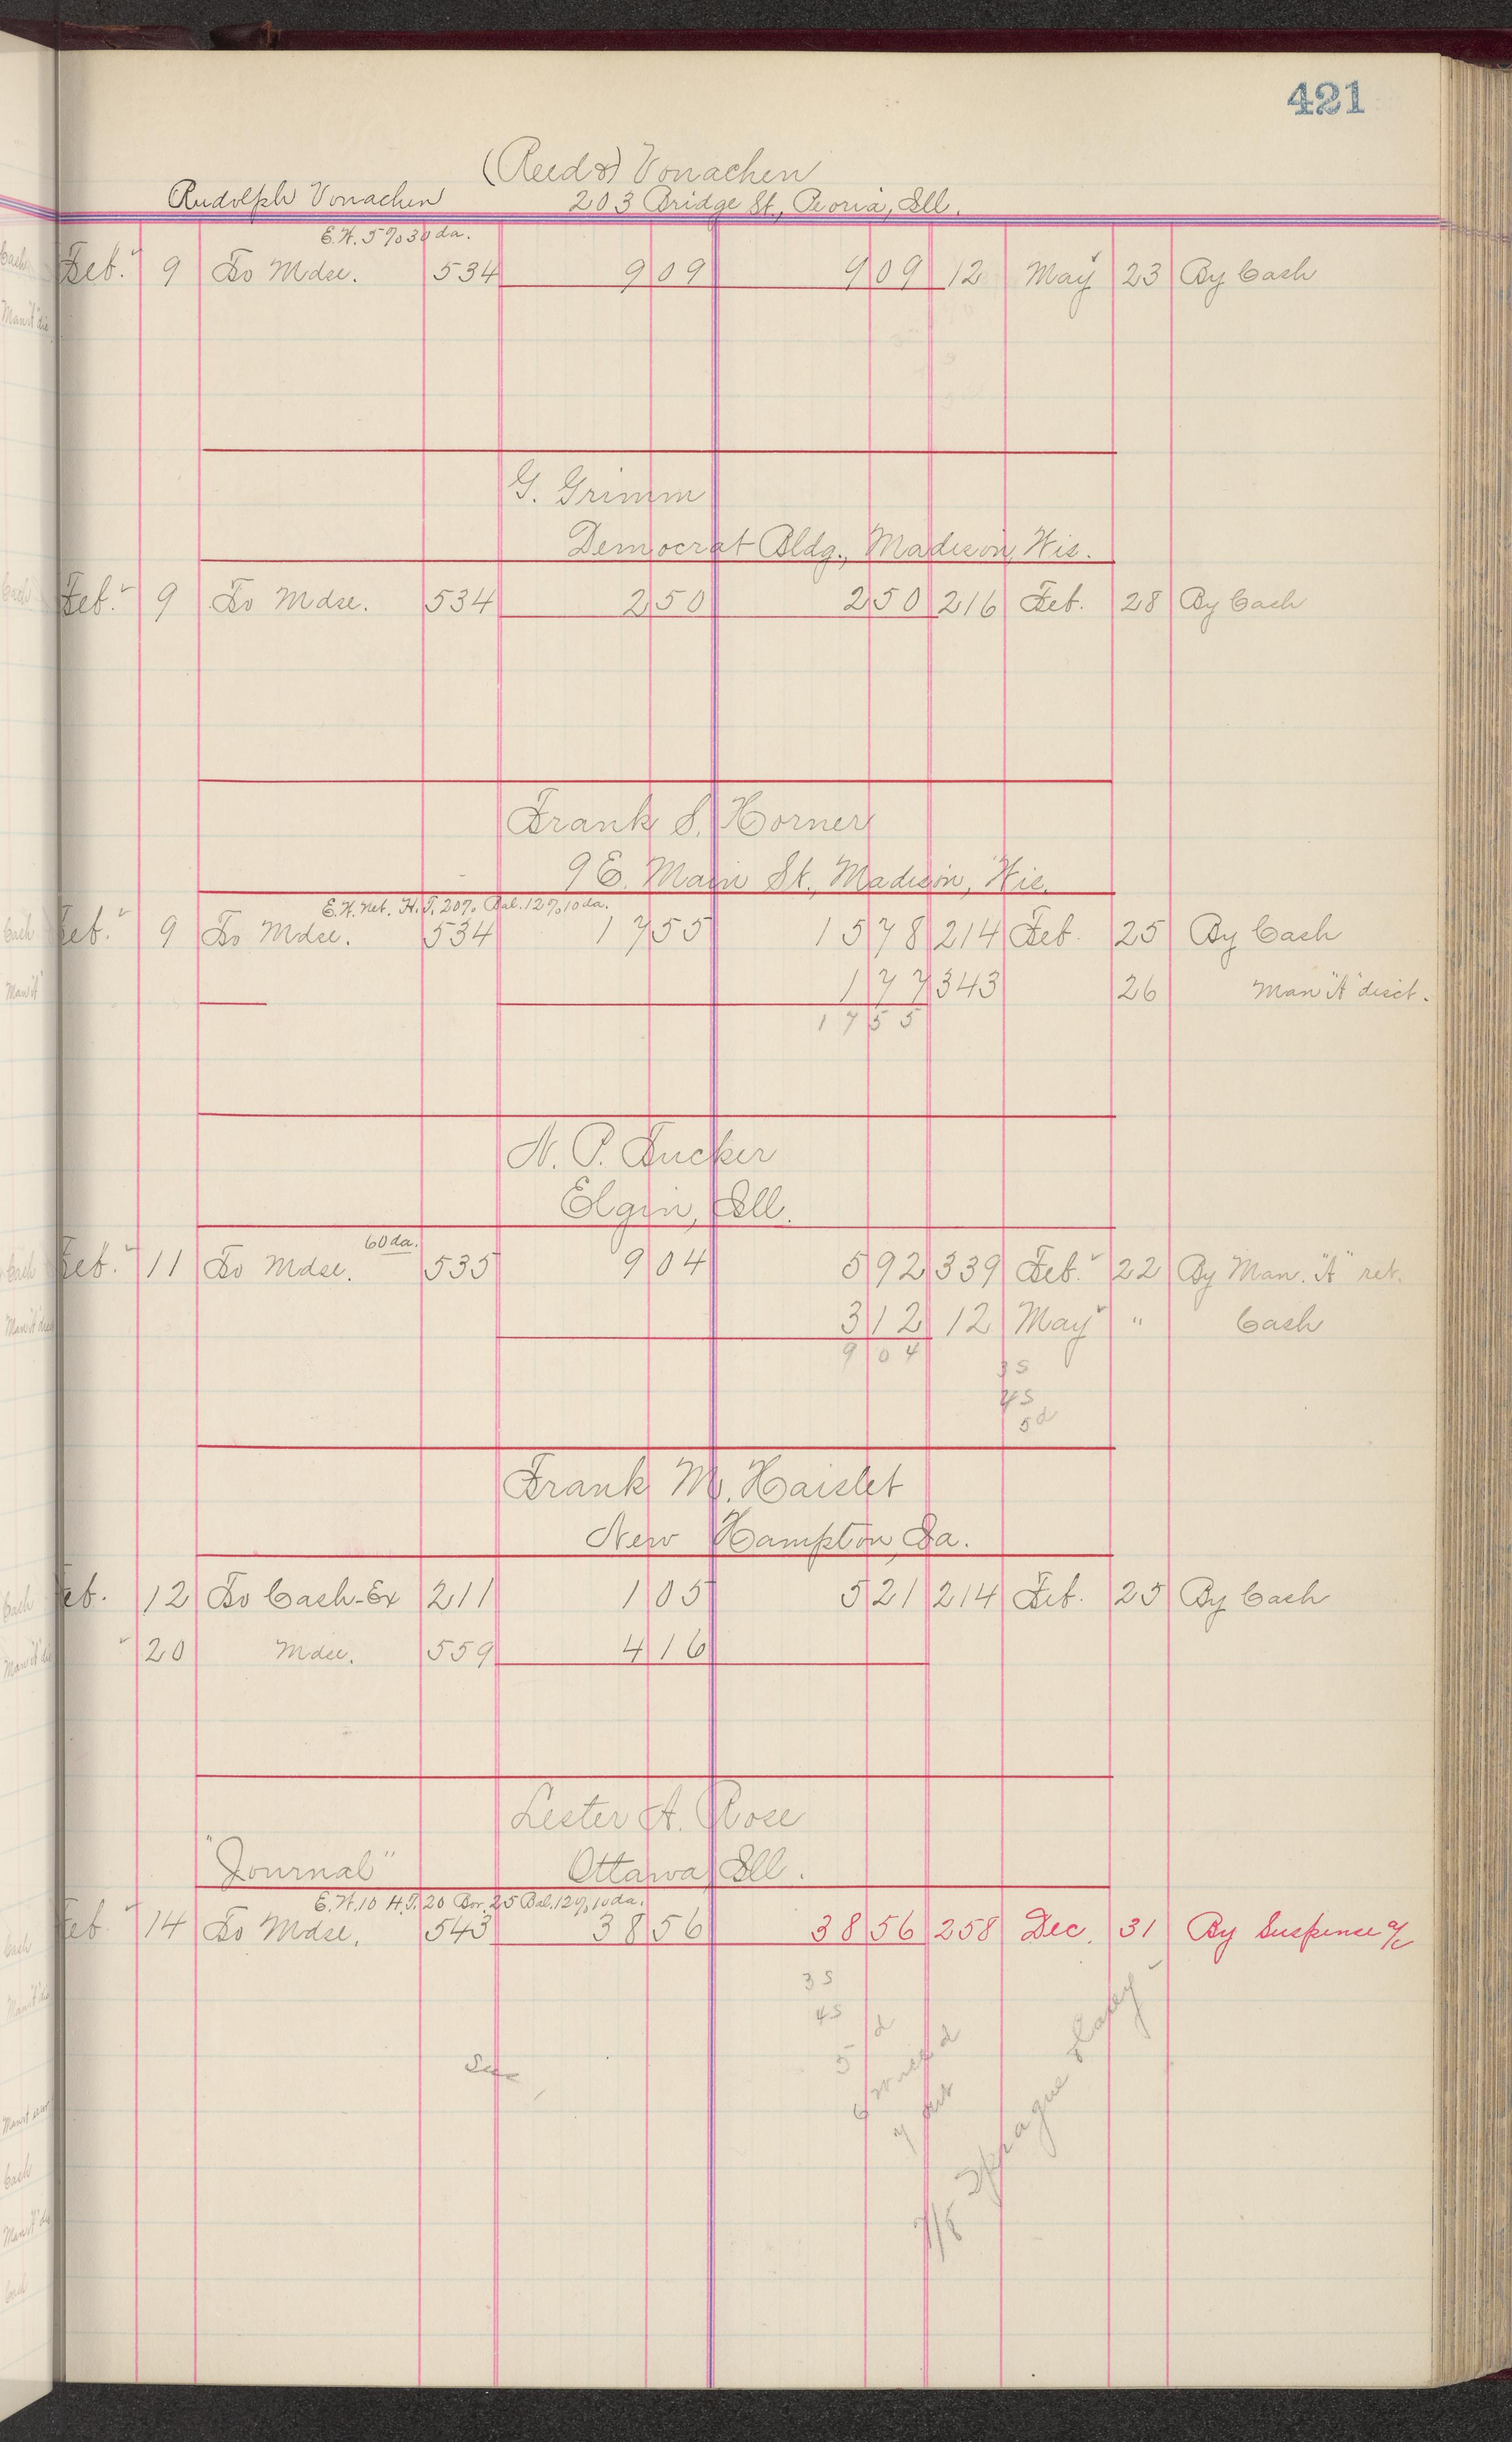 421
(Reed &) Vonachen
Rudolph Vonachen 203 Bridge St., Peoria, Ill.
E.H. 5% 30 da.
Feb. 9 To Mdse. 534 9 09 9 09 12 May 23 By Cash
G. Grimm
Democrat Bldg., Madison, Wis.
Feb. 9 To Mdse. 534 2 50 2 50 216 Feb. 28 By Cash
Frank S. Horner
9 E. Main St., Madison, Wis.
E.H. Net. H.T. 20% Bal. 12% 10 da.
Feb. 9 To Mdse. 534 17 55 15 78 214 Feb. 25 By Cash
1 77 343 26 Man "A" disct.
17 55
N. P. Tucker
Elgin, Ill.
60 da.
Feb. 11 To Mdse. 535 9 04 5 92 339 Feb. 22 By Man. "A" ret.
3 12 12 May " Cash
9 04
3s
4s
5d
Frank M. Haislet
New Hampton, Ia.
Feb. 12 To Cash-Ex 211 1 05 5 21 214 Feb. 25 By Cash
20 Mdse. 559 4 16
Lester A. Rose
"Journal" Ottawa, Ill.
E.H. 10 H.T. 20 Bor. 25 Bal. 12% 10 da.
Feb. 14 To Mdse. 543 38 56 38 56 258 Dec. 31 By Suspense a/c
3s
4s
5 d
6
7
7/8 Sprague